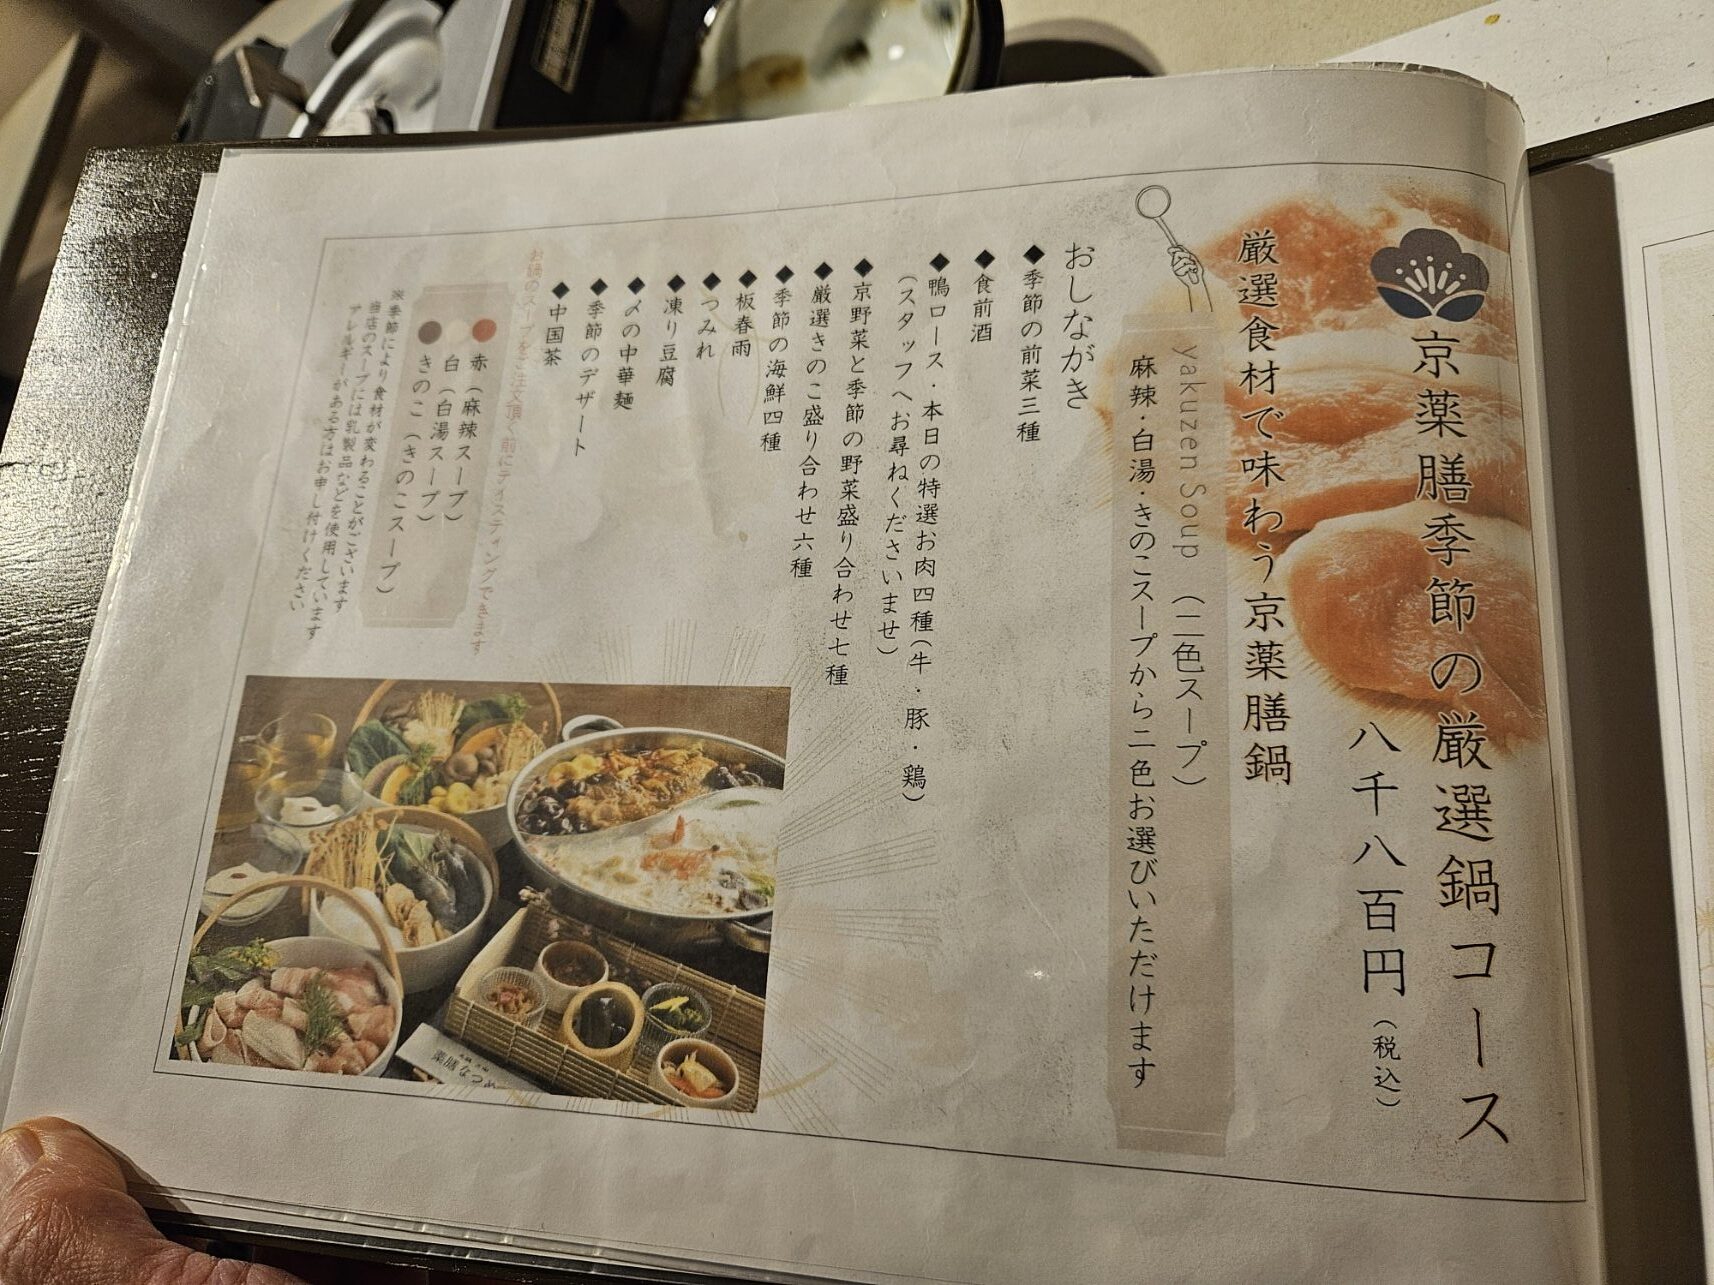 京薬膳季節の厳選鍋コース
八千八百円（税込）
厳選食材で味わう京薬膳鍋
yakuzen Soup （二色スープ）
麻辣・白湯・きのこスープから二色お選びいただけます
おしながき
◆季節の前菜三種
◆食前酒
◆鴨ロース・本日の特選お肉四種（牛・豚・鶏）
（スタッフへお尋ねくださいませ）
◆京野菜と季節の野菜盛り合わせ七種
◆厳選きのこ盛り合わせ六種
◆季節の海鮮四種
◆板春雨
◆つみれ
◆凍り豆腐
◆〆の中華麺
◆季節のデザート
◆中国茶
お鍋のスープをご注文頂く前にテイスティングできます
赤（麻辣スープ）
白（白湯スープ）
きのこ（きのこスープ）
※季節により食材が変わることがございます
当店のスープには乳製品などを使用しています
アレルギーがある方はお申し付けください
薬膳なつめ